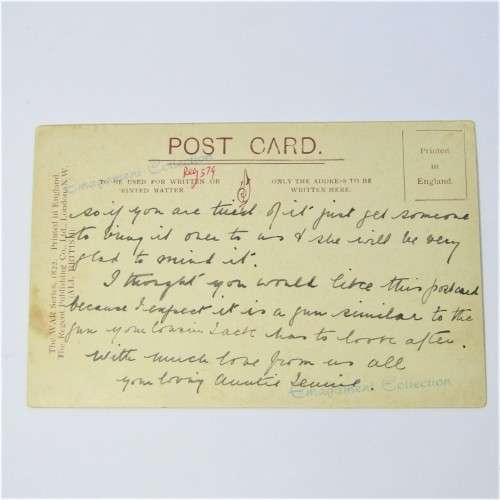 POST CARD.
Reg 579
TO BE USED FOR WRITTEN OR
PRINTED MATTER.
ONLY THE ADDRESS TO BE
WRITTEN HERE.
Printed
in
England.
The WAR Series, 1822. Printed in England.
The Regent Publishing Co., Ltd., London, N.W.
ALL BRITISH
Emagament Collection
so if you are tired of it just get someone
to bring it over to us & she will be very
glad to mind it.
I thought you would like this postcard
because I expect it is a gun similar to the
gun your cousin Jack has to look after.
With much love from us all
your loving Auntie
Emagament Collection